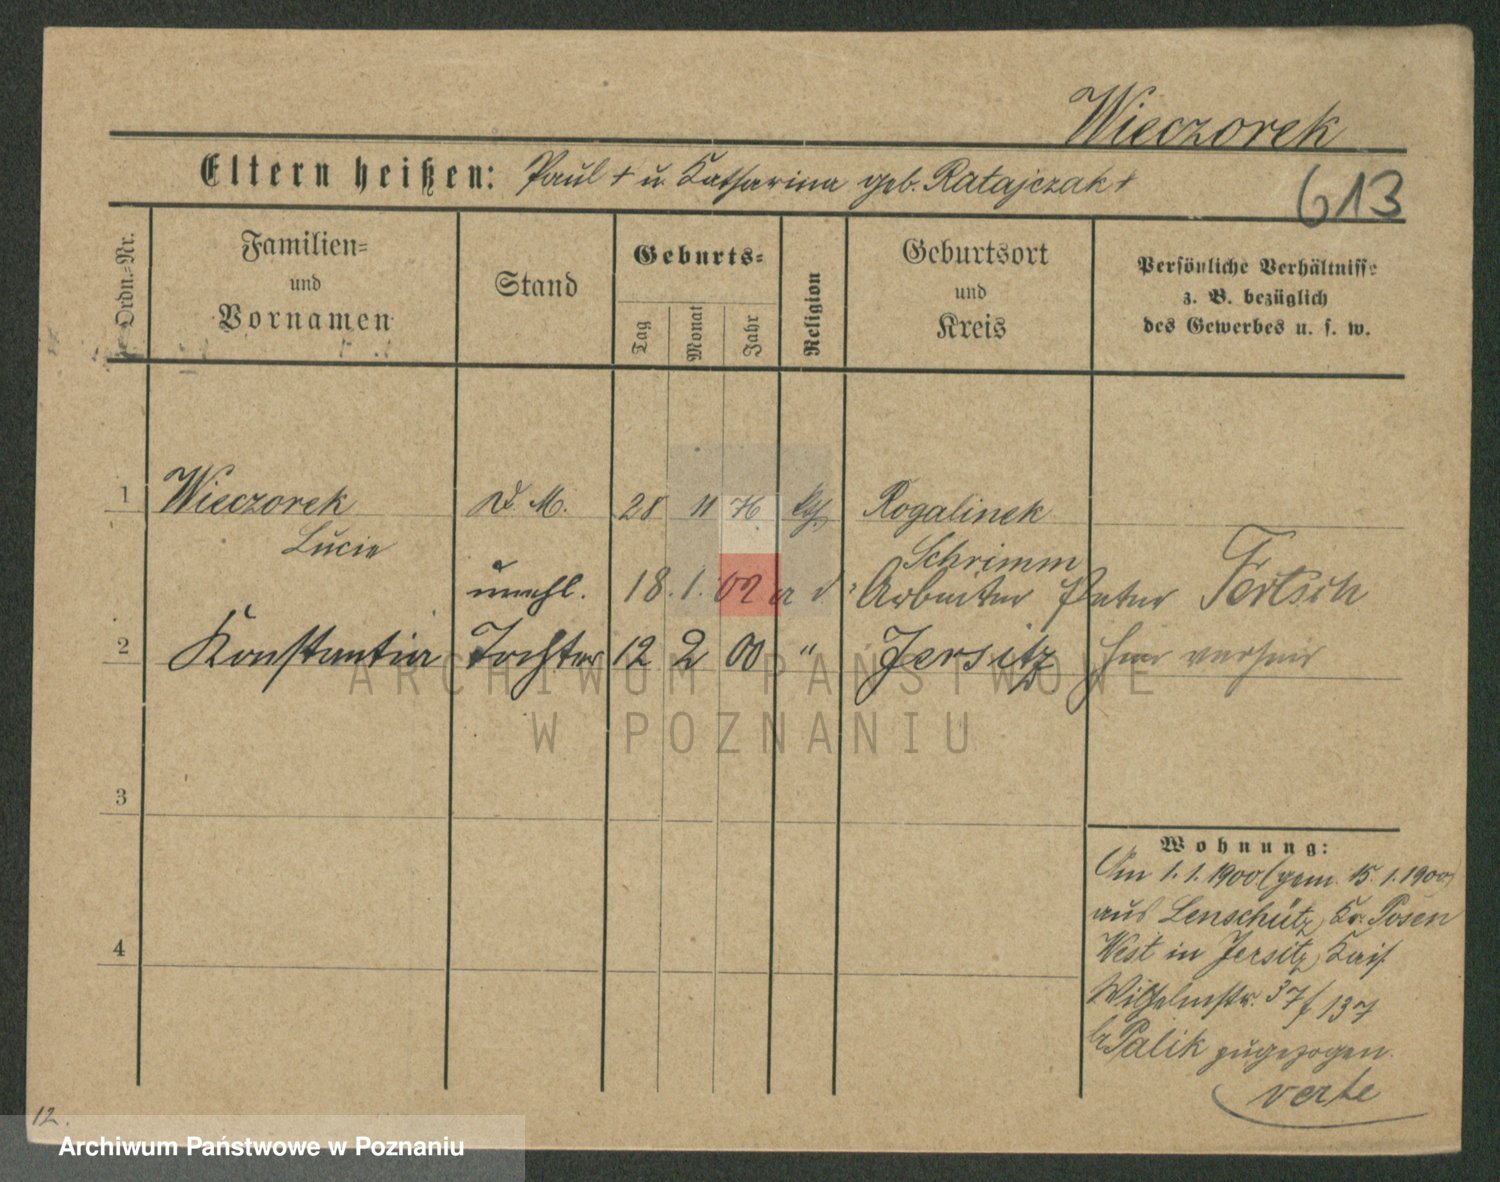 Wieczorek
Eltern heißen: Paul + u. Katharina geb. Ratajczak +
613
Ordn.-Nr.
Familien-
und
Vornamen
Stand
Geburts-
Tag
Monat
Jahr
Religion
Geburtsort
und
Kreis
Persönliche Verhältnisse
z. B. bezüglich
des Gewerbes u. s. w.
1 Wieczorek D. M. 28 11 76 kth Rogalinek
Lucie Schrimm
unehl. 18. 1. 02 Arbeiter Peter Fertsch
2 Konstantia Tochter 12 2 00 " Jersitz hier verheir
3
4
Wohnung:
Am 1. 1. 1900 (gem. 15. 1. 1900)
aus Lenschütz, Kr. Posen
West in Jersitz, Kais
Wilhelmstr. 37/137
b. Palik zugezogen.
verte
12.
ARCHIWUM PAŃSTWOWE
W POZNANIU
Archiwum Państwowe w Poznaniu